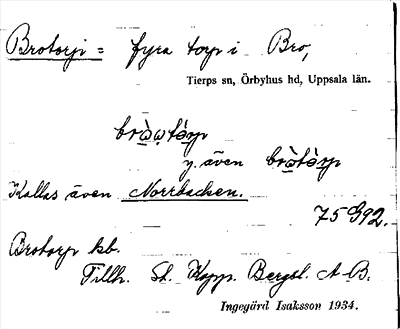 Brotorp = fyra torp i Bro,
Tierps sn, Örbyhus hd, Uppsala län.
y. även
Kallas även Norrbacken.
75 G92.
Brotorp kb.
Tillh. St. Kopp. Bergsl. A-B.
Ingegärd Isaksson 1934.